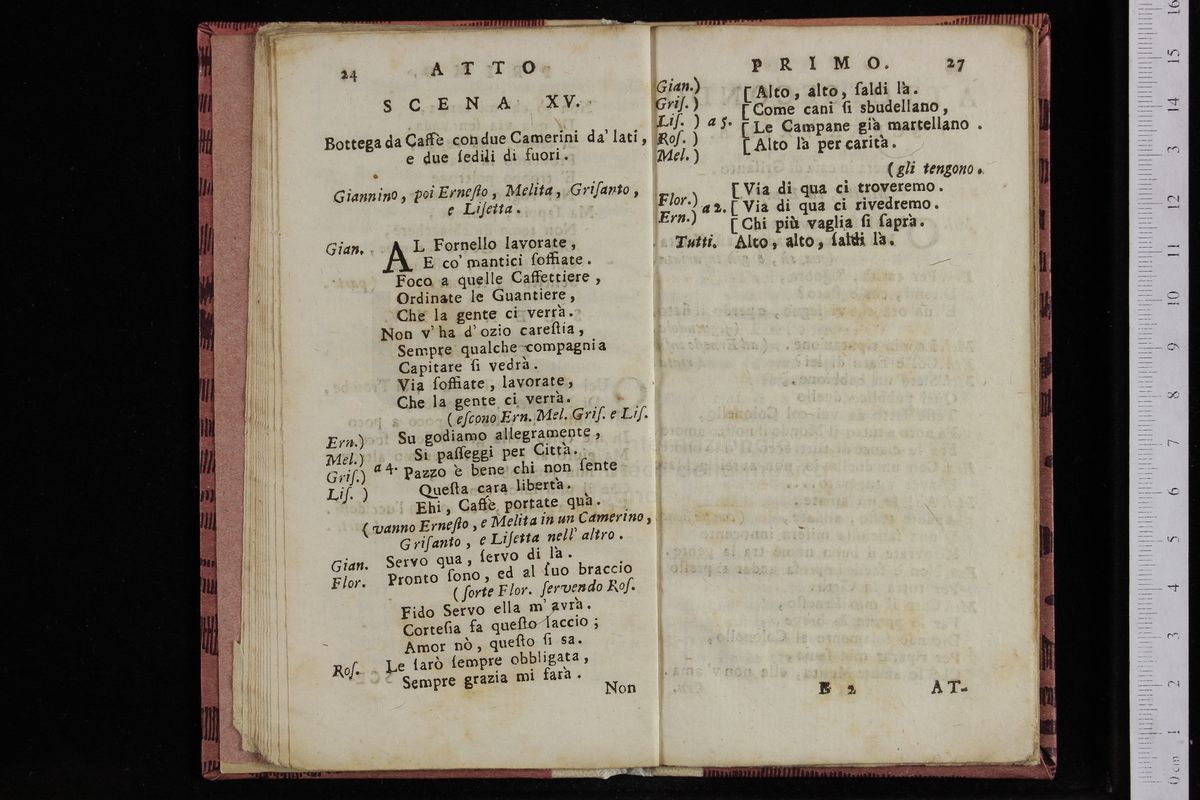 24 ATTO
SCENA XV.
Bottega da Caffè con due Camerini da' lati,
e due ſedili di fuori.
Giannino, poi Erneſto, Melita, Griſanto,
e Liſetta.
Gian. AL Fornello lavorate,
E co' mantici ſoffiate.
Foco a quelle Caffettiere,
Ordinate le Guantiere,
Che la gente ci verrà.
Non v' ha d' ozio careſtia,
Sempre qualche compagnia
Capitare ſi vedrà.
Via ſoffiate, lavorate,
Che la gente ci verrà.
(eſcono Ern. Mel. Griſ. e Liſ.
Ern.) Su godiamo allegramente,
Mel.) Si paſſeggi per Città.
Griſ.) a 4. Pazzo è bene chi non ſente
Liſ. ) Queſta cara libertà.
Ehi, Caffè portate quà.
(vanno Erneſto, e Melita in un Camerino,
Griſanto, e Liſetta nell' altro.
Gian. Servo qua, ſervo di là.
Flor. Pronto ſono, ed al ſuo braccio
(ſorte Flor. ſervendo Roſ.
Fido Servo ella m' avrà.
Corteſia fa queſto laccio;
Amor nò, queſto ſi sa.
Roſ. Le ſarò ſempre obbligata,
Sempre grazia mi farà.
Non
PRIMO. 27
Gian.) [Alto, alto, ſaldi là.
Griſ. ) [Come cani ſi sbudellano,
Liſ. ) a 5. [Le Campane già martellano.
Roſ. ) [Alto là per carità.
Mel. )
(gli tengono.
[Via di qua ci troveremo.
Flor.) a 2. [Via di qua ci rivedremo.
Ern.) [Chi più vaglia ſi ſaprà.
Tutti. Alto, alto, ſaldi là.
B 2 AT-